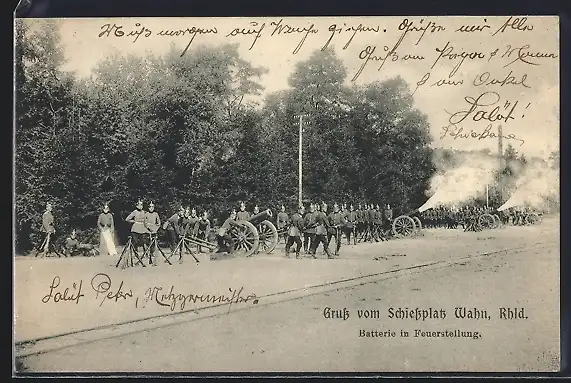 Muß morgen auf Wache ziehen. Grüße mir Alle
Gruß an
& am Onkel
Salüt!
Salüt Petr, Metzgermeister
Gruß vom Schießplatz Wahn, Rhld.
Batterie in Feuerstellung.